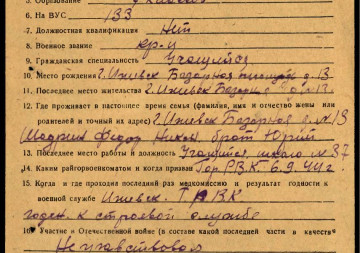 5. Образование
6. На ВУС 133
7. Должностная квалификация Нет
8. Военное звание кр-ц
9. Гражданская специальность Учащийся
10. Место рождения г. Ижевск Базарная площадь д. 13
11. Последнее место жительства г. Ижевск Базарная д. № 13
12. Где проживает в настоящее время семья (фамилия, имя и отчество жены или
родителей и точный их адрес) г. Ижевск Базарная д. № 13
Федор Никон. брат Юрий
13. Последнее место работы и должность Учащийся, школа № 37
14. Каким райгорвоенкоматом и когда призван Гор. РВК 6.9.44 г.
15. Когда и где проходил последний раз медкомиссию и результат годности к
военной службе Ижевск. ГРВК
годен к строевой службе
16. Участие в Отечественной войне (в составе какой последней части и в качестве
Не участвовал